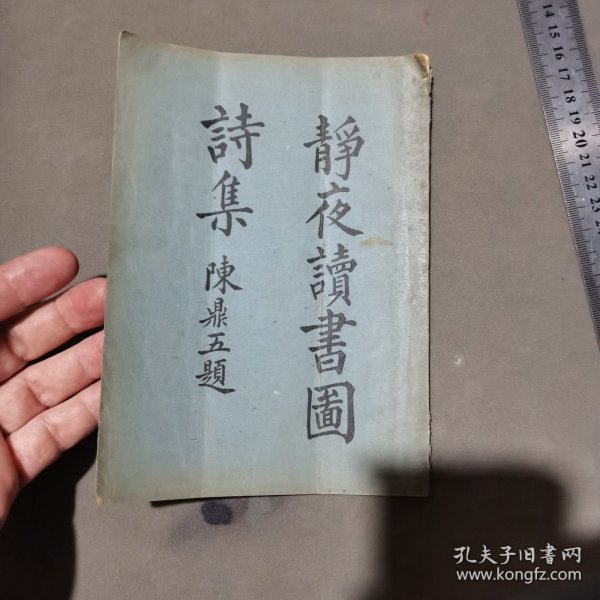 靜夜讀書圖
詩集
陳鼎五題
14 15 16 17 18 19 20 21 22 23 24
孔夫子旧書网
www.kongfz.com